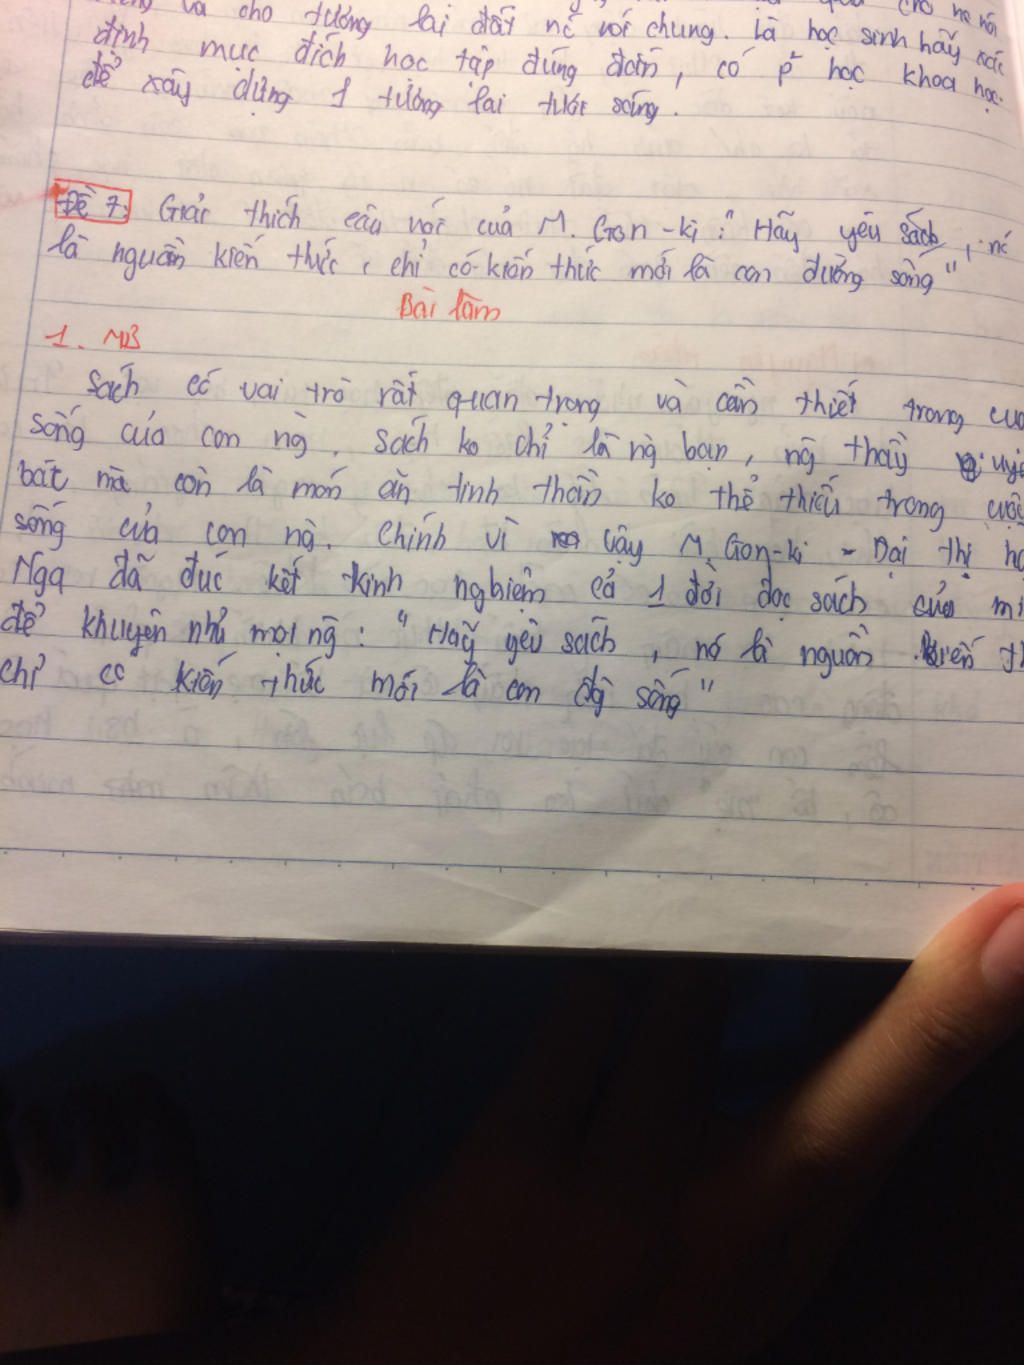 và cho tương lai đất nc nói chung. Là học sinh hãy xác
định mục đích học tập đúng đắn, có p² học khoa học
để xây dựng 1 tương lai tươi sáng.
Đề 7: Giải thích câu nói của M. Gon-ki: "Hãy yêu sách, nó
là nguồn kiến thức, chỉ có kiến thức mới là con đường sống"
Bài làm
1. MB
Sách có vai trò rất quan trọng và cần thiết trong
sống của con ng. Sách ko chỉ là ng bạn, ng thầy
bát mà còn là món ăn tinh thần ko thể thiếu trong
sống của con ng. Chính vì vậy M. Gon-ki - Đại thi
Nga đã đúc kết kinh nghiệm cả 1 đời đọc sách của
để khuyên nhủ mọi ng: "Hãy yêu sách, nó là nguồn kiến
chỉ có kiến thức mới là con đg sống"